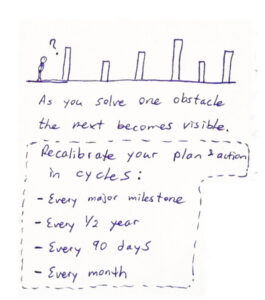 ?
As you solve one obstacle
the next becomes visible.
Recalibrate your plan & action
in cycles:
- Every major milestone
- Every 1/2 year
- Every 90 days
- Every month